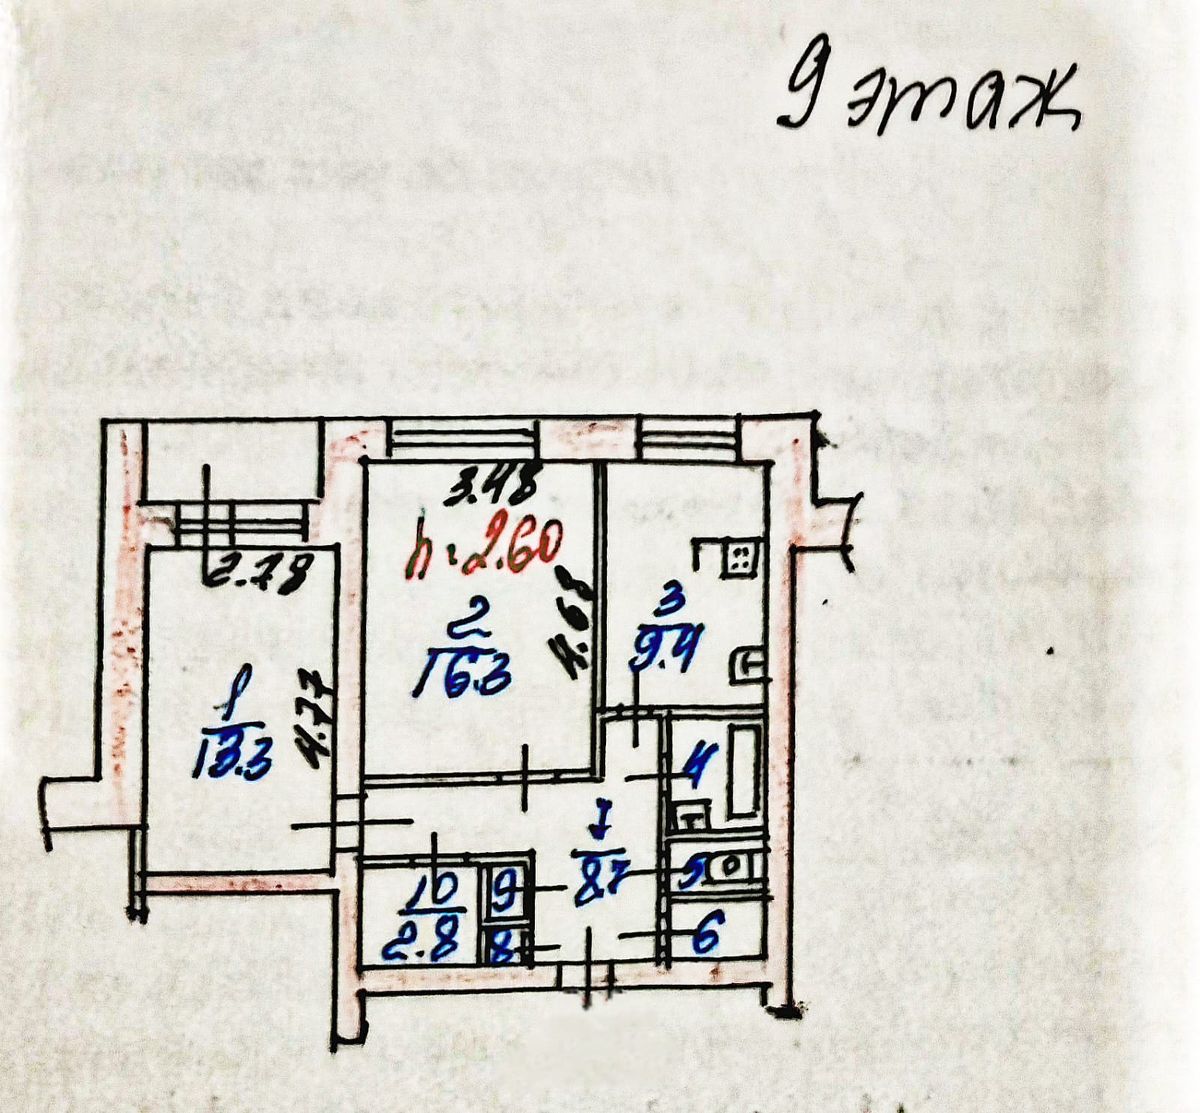 9 этаж
3.48
h=2.60
2.78
4.68
3
9.4
2
16.3
1
13.3
4.77
4
7
8.7
5
10
2.8
9
8
6